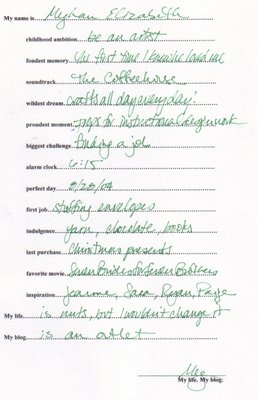 My name is Meghan Elizabeth
childhood ambition be an artist
fondest memory the first time I knew he loved me
soundtrack The Coffeehouse
wildest dream crafts all day everyday!
proudest moment props for instructional
biggest challenge finding a job
alarm clock 6:15
perfect day 8/28/04
first job stuffing envelopes
indulgence yarn, chocolate, books
last purchase Christmas presents
favorite movie Seven Brides for Seven Brothers
inspiration Jeanne, Sara, Ryan, Paige
My life is nuts, but I wouldn't change it
My blog is an outlet
Meg
My life. My blog.